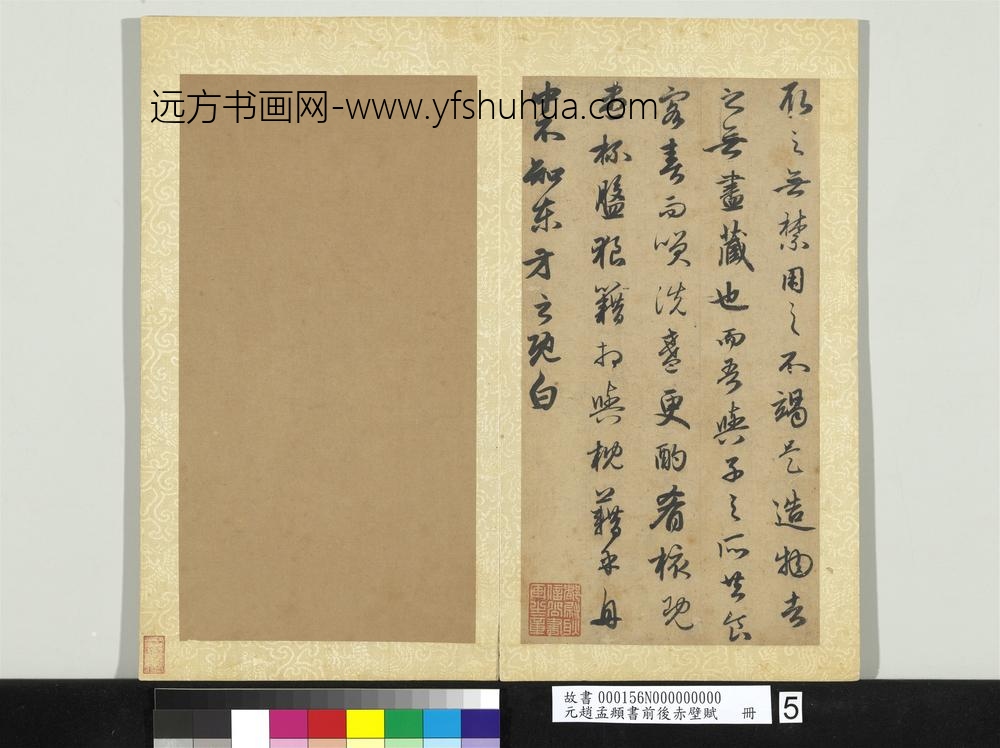 远方书画网-www.yfshuhua.com
取之無禁用之不竭是造物者
之無盡藏也而吾與子之所共食
客喜而笑洗盞更酌肴核既
盡杯盤狼籍相與枕藉乎舟
中不知東方之既白
都尉耿信公書畫之章
故書 000156N000000000
元趙孟頫書前後赤壁賦 冊
5